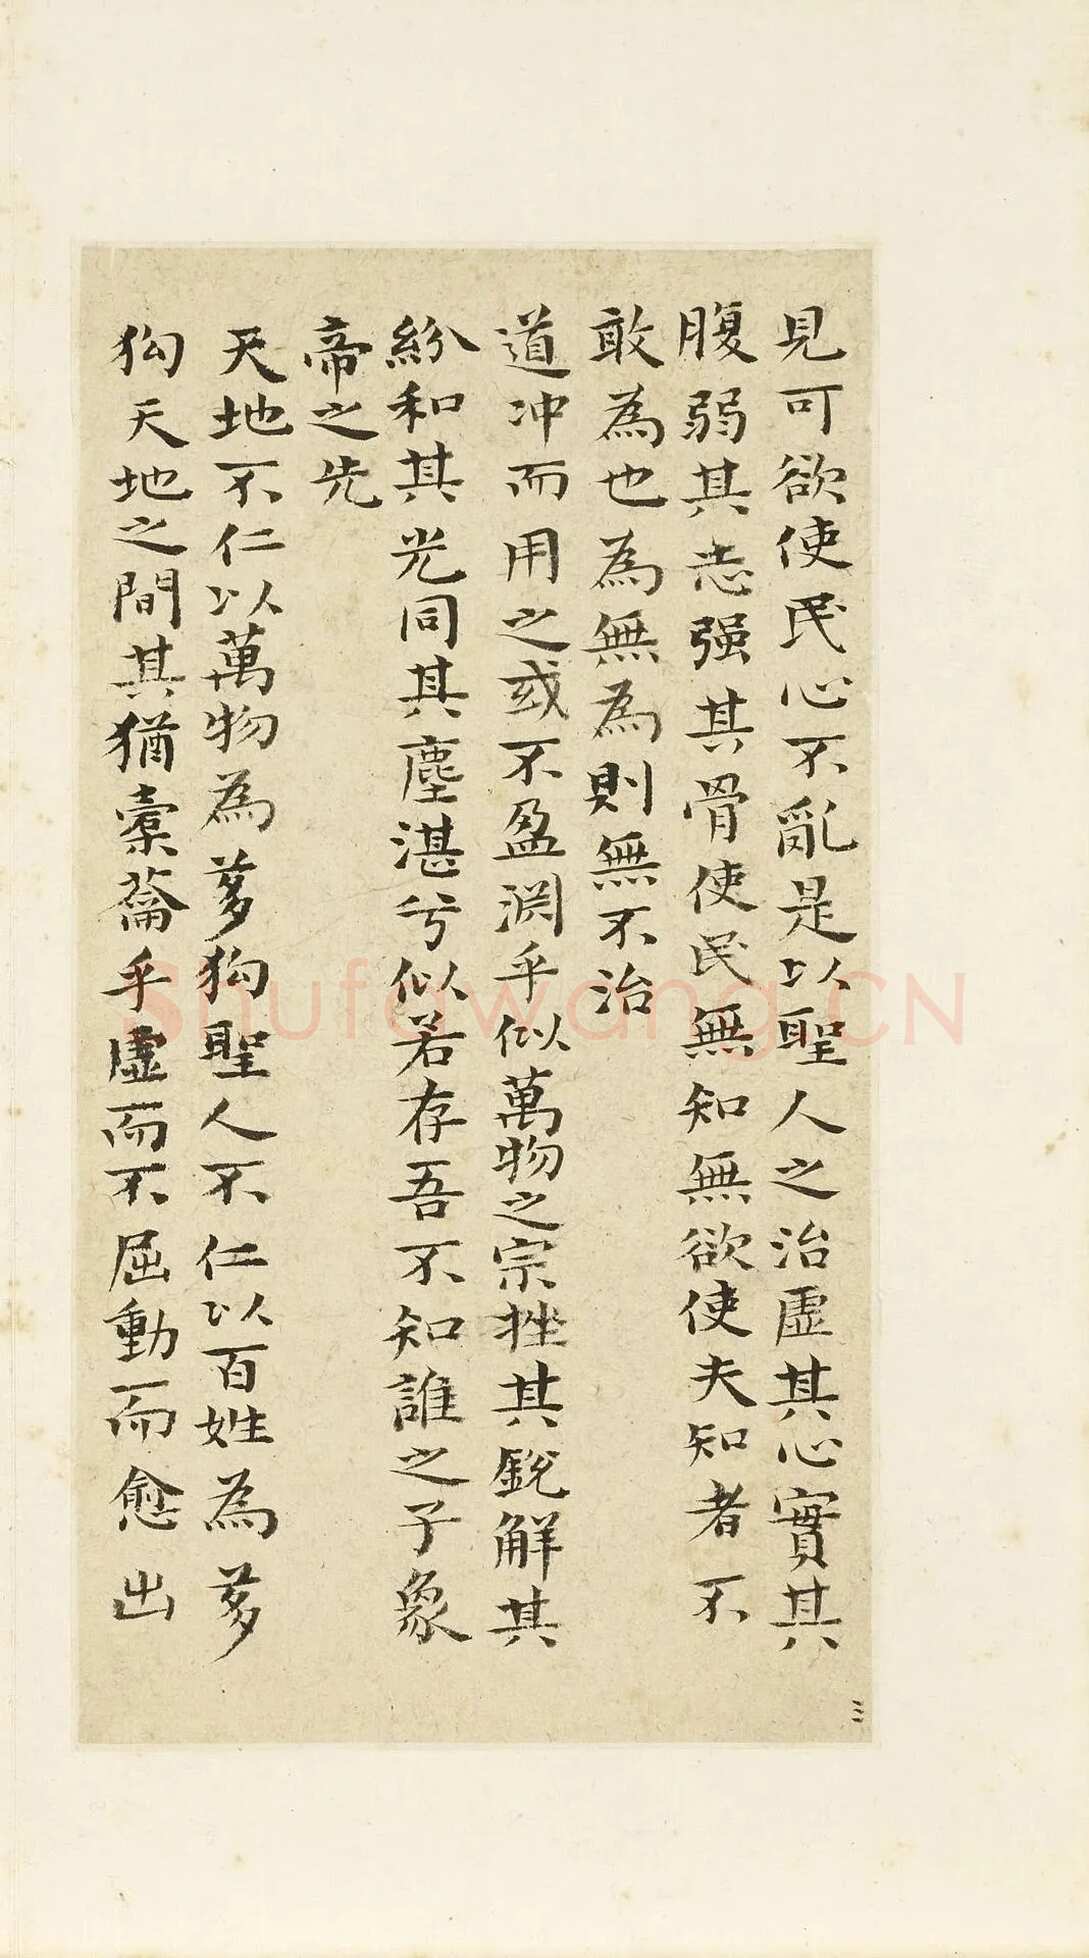 見可欲使民心不亂是以聖人之治虛其心實其
腹弱其志强其骨使民無知無欲使夫知者不
敢為也為無為則無不治
道冲而用之或不盈淵乎似萬物之宗挫其銳解其
紛和其光同其塵湛兮似若存吾不知誰之子象
帝之先
天地不仁以萬物為芻狗聖人不仁以百姓為芻
狗天地之間其猶橐籥乎虛而不屈動而愈出
三
shufawang.CN